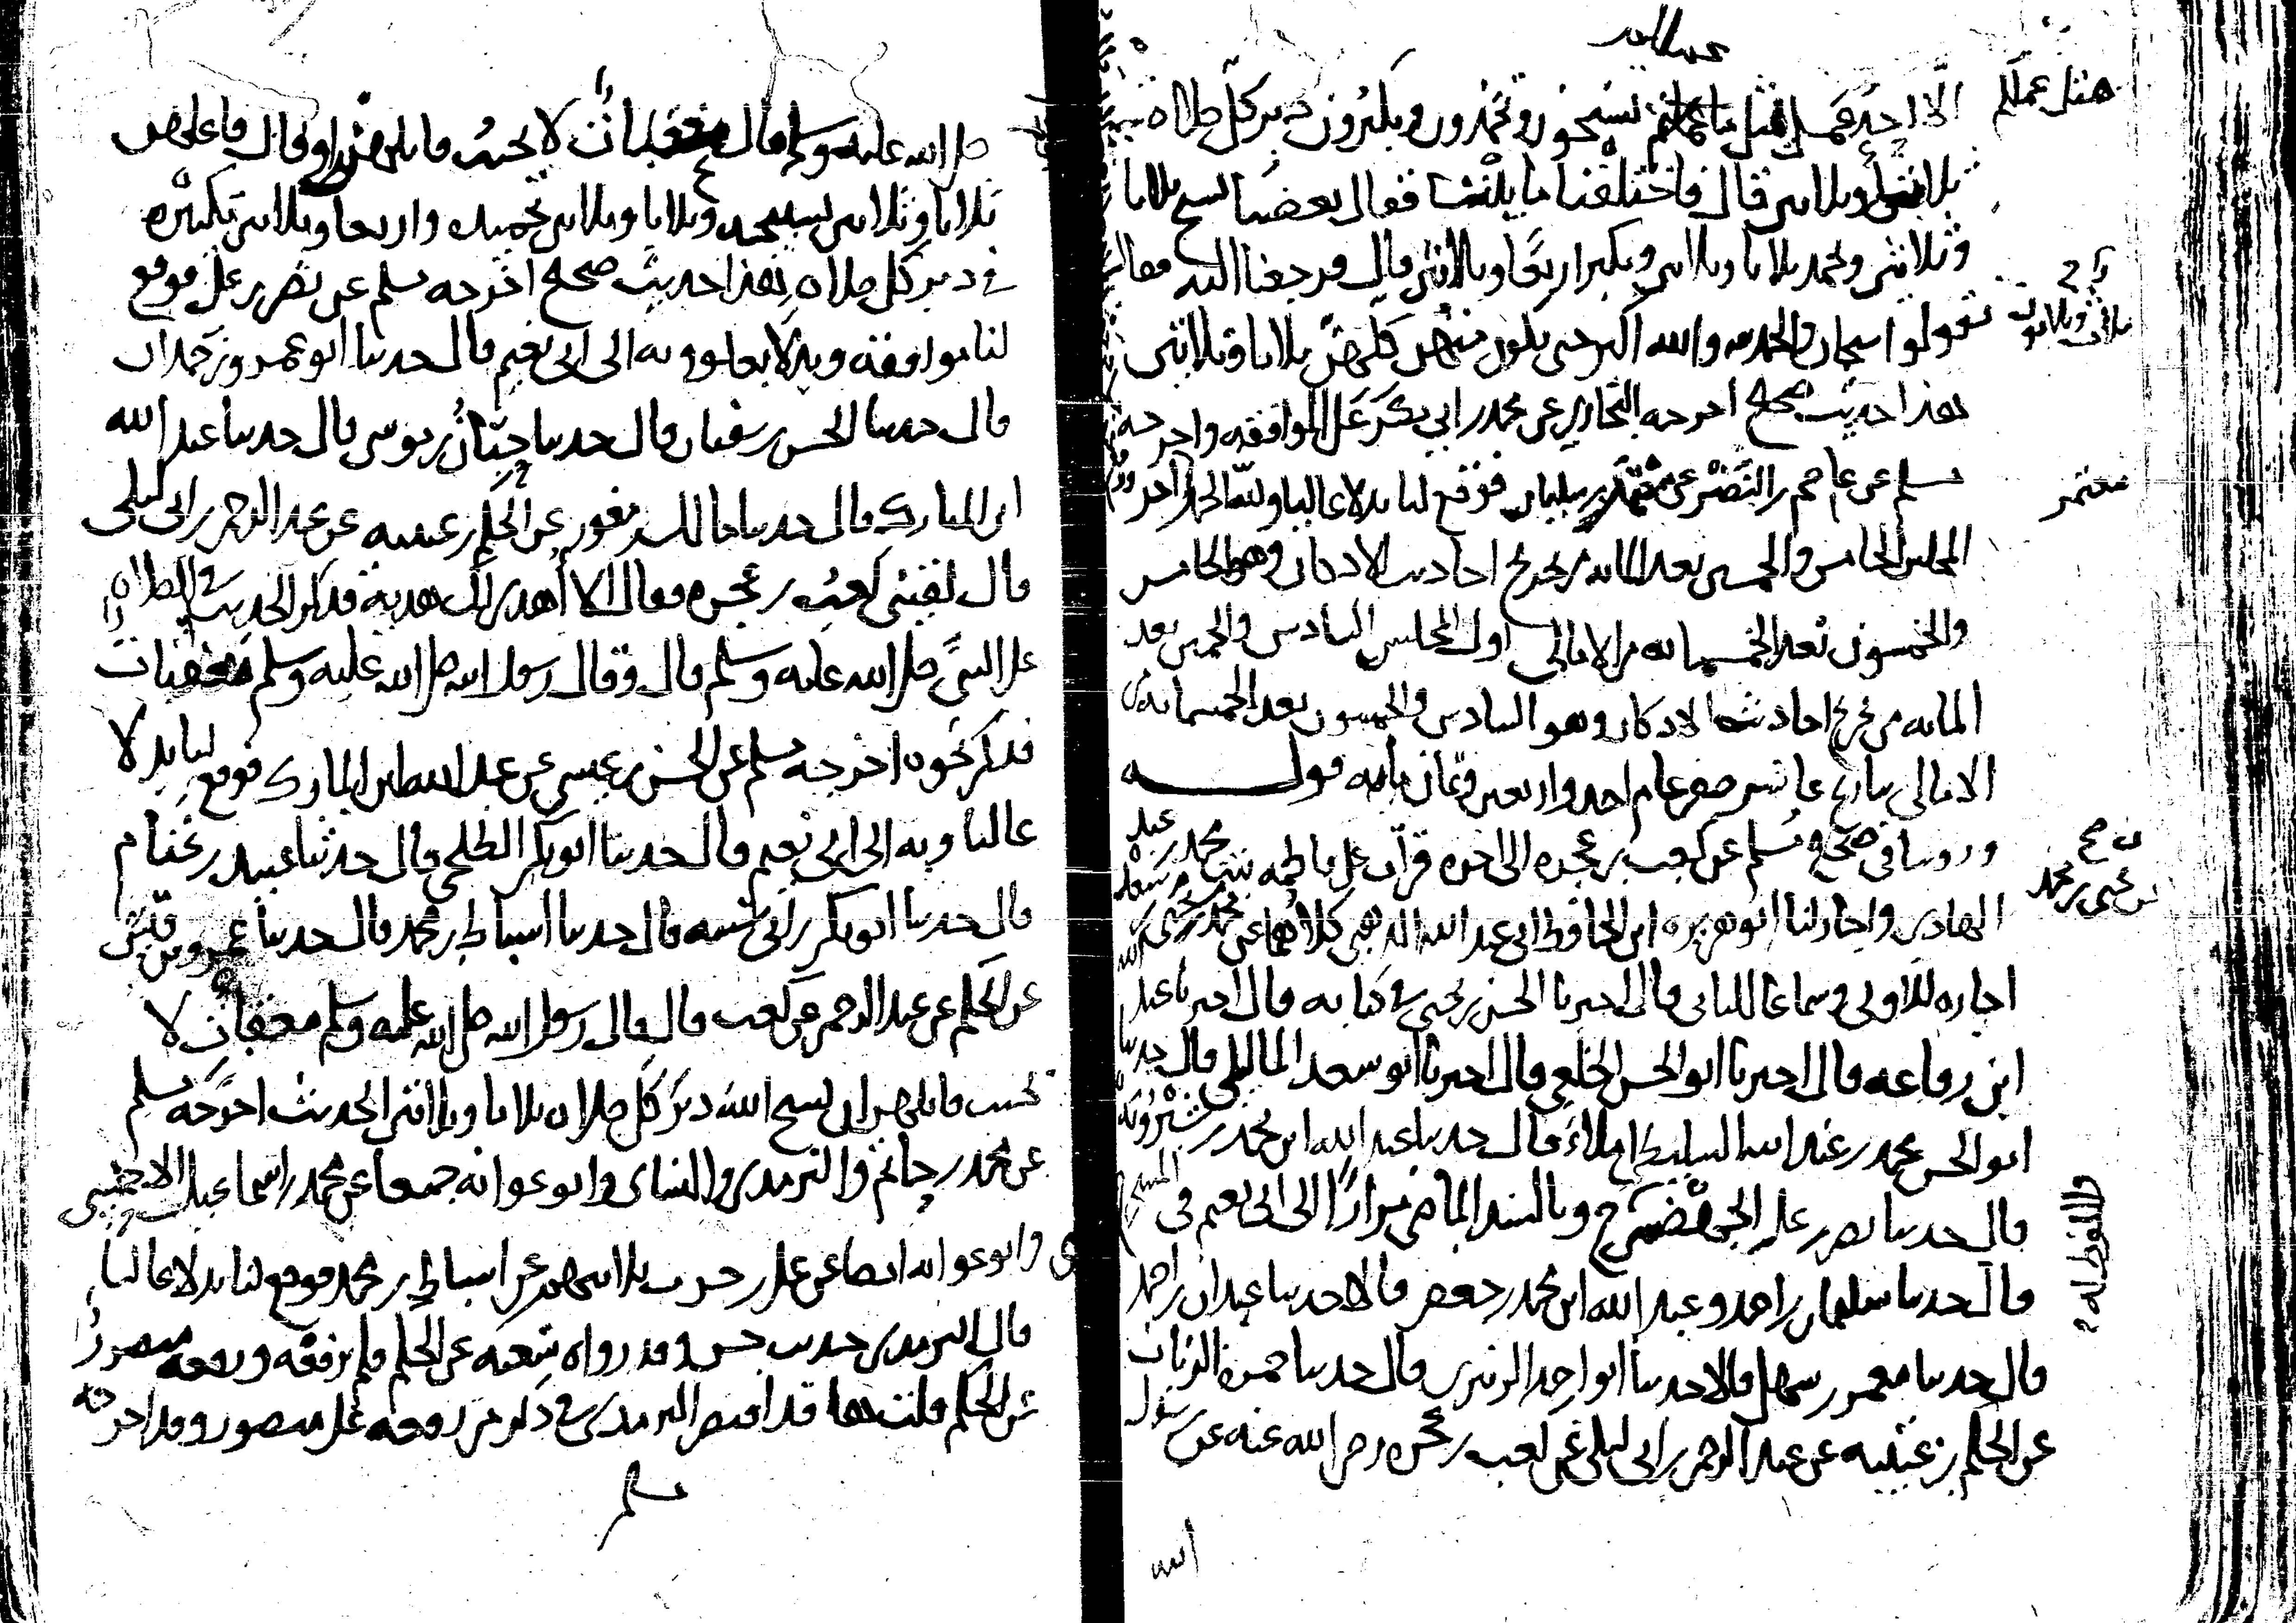 إلا أحد عمل مثل ما عملتم تسبحون وتحمدون وتكبرون دبر كل صلاة
مثل عملكم
ثلاثا وثلاثين قال فاختلفنا بيننا فقال بعضنا نسبح ثلاثا
وثلاثين ونحمد ثلاثا وثلاثين ونكبر أربعا وثلاثين قال فرجعنا إليه فقال
تقولوا سبحان الله والحمد لله والله أكبر حتى يكون منهن كلهن ثلاثا وثلاثين
ثلاث وثلاثون
هذا حديث صحيح أخرجه البخاري عن محمد بن أبي بكر على الموافقة وأخرجه
مسلم عن عاصم بن النضر عن معتمر بن سليمان فوقع لنا بدلا عاليا ولله الحمد آخر
معتمر
المجلس الخامس والخمسين بعد المائة من تخريج أحاديث الأذكار وهو الخامس
والخمسون بعد الخمسمائة من الأمالي أول المجلس السادس والخمسين بعد
المائة من تخريج أحاديث الأذكار وهو السادس والخمسون بعد الخمسمائة من
الأمالي بتاريخ عاشر صفر عام أحد وأربعين وثمان مائة قوله
وروينا في صحيح مسلم عن كعب بن عجرة إلى آخره قرأت على فاطمة بنت محمد بن عبد
الهادي وأجاز لنا أبو هريرة ابن الحافظ أبي عبد الله الذهبي كلاهما عن
يحيى بن محمد
إجازة للأولى وسماعا للثاني قال أخبرنا الحسن بن يحيى في كتابه قال أخبرنا عبد الله
ابن رفاعة قال أخبرنا أبو الحسن الخلعي قال أخبرنا أبو سعد الماليني قال حدثنا
أبو الحسن محمد بن عبد الله السليطي إملاء قال حدثنا عبد الله ابن محمد بن شيرويه
قال حدثنا نصر بن علي الجهضمي ح وبالسند الماضي مرارا إلى أبي نعيم في المستخرج
قال حدثنا سليمان بن أحمد وعبد الله ابن محمد بن جعفر قالا حدثنا عبدان بن أحمد
واللفظ له
قال حدثنا معمر بن سهل قالا حدثنا أبو أحمد الزبيري قال حدثنا حمزة الزيات
عن الحكم بن عتيبة عن عبد الرحمن بن أبي ليلى عن كعب بن عجرة رضي الله عنه عن رسول
الله
صلى الله عليه وسلم قال معقبات لا يخيب قائلهن أو قال فاعلهن
ثلاثا وثلاثين تسبيحة وثلاثا وثلاثين تحميدة وأربعا وثلاثين تكبيرة
في دبر كل صلاة هذا حديث صحيح أخرجه مسلم عن نصر بن علي فوقع
لنا موافقة وبدلا بعلو وبه إلى أبي نعيم قال حدثنا أبو عمرو بن حمدان
قال حدثنا الحسن بن سفيان قال حدثنا حبان بن موسى قال حدثنا عبد الله
ابن المبارك قال حدثنا مالك بن مغول عن الحكم بن عتيبة عن عبد الرحمن بن أبي ليلى
قال لقيني كعب بن عجرة فقال ألا أهدي لك هدية فذكر الحديث في الصلاة
على النبي صلى الله عليه وسلم قال وقال رسول الله صلى الله عليه وسلم معقبات
فذكر نحوه أخرجه مسلم عن الحسن بن عيسى عن عبد الله بن المبارك فوقع لنا بدلا
عاليا وبه إلى أبي نعيم قال حدثنا أبو بكر الطلحي قال حدثنا عبيد بن غنام
قال حدثنا أبو بكر بن أبي شيبة قال حدثنا أسباط بن محمد قال حدثنا عمرو بن قيس
عن الحكم عن عبد الرحمن عن كعب قال قال رسول الله صلى الله عليه وسلم معقبات لا
يخيب قائلهن أن يسبح الله دبر كل صلاة ثلاثا وثلاثين الحديث أخرجه مسلم
عن محمد بن حاتم والترمذي والنسائي وأبو عوانة جميعا عن محمد بن إسماعيل الأحمسي
وأبو عوانة أيضا عن علي بن حرب ثلاثتهم عن أسباط بن محمد فوقع لنا بدلا عاليا
قال الترمذي حديث حسن وقد رواه شعبة عن الحكم ولم يرفعه ورفعه منصور
عن الحكم قلت هكذا اقتصر الترمذي في ذكر من رفعه على منصور وقد أخرجه
مسلم